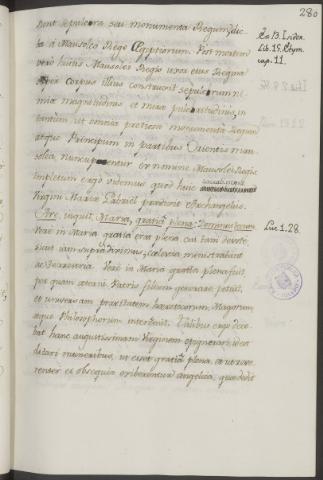 280
sunt sepulcra seu monumenta Regum, dic-
ta à Mausoleo Rege Ægyptiorum. Post mortem
vero huius Mausolei Regis uxor eius Regina
corpus illius construxit sepulcrum ni-
mia magnitudinis et mira pulchritudinis, in
tantum ut omnia pretiosa monumenta Regum
atque Principum in partibus Orientis mau-
solea, nuncupentur ex nomine Mausolei Regis.
Impletum ergo videmus quod hanc
Virgini Maria Gabriel predixit Archangelus.
Ave, inquit, Maria, gratia plena: Dominus tecum.
Verè in Maria gratia erat plena cui tam devotè,
sicut iam supra diximus, cælestia ministrabant
Verè in Maria gratia plena fuit,
per quam æterni Patris filium generare potuit,
et universam pravitatem hæreticorum, Magorum,
atque Philosophorum interemit. Talibus ergo dece-
bat hanc augustissimam Virginem opignerari, id est
ditari muneribus, ut esset gratia plena,
et obsequia exiberentur angelica, quæ dedit
Ex B. Isidor.
Lib. 15. Etym.
cap. 11.
Luc. 1. 28.